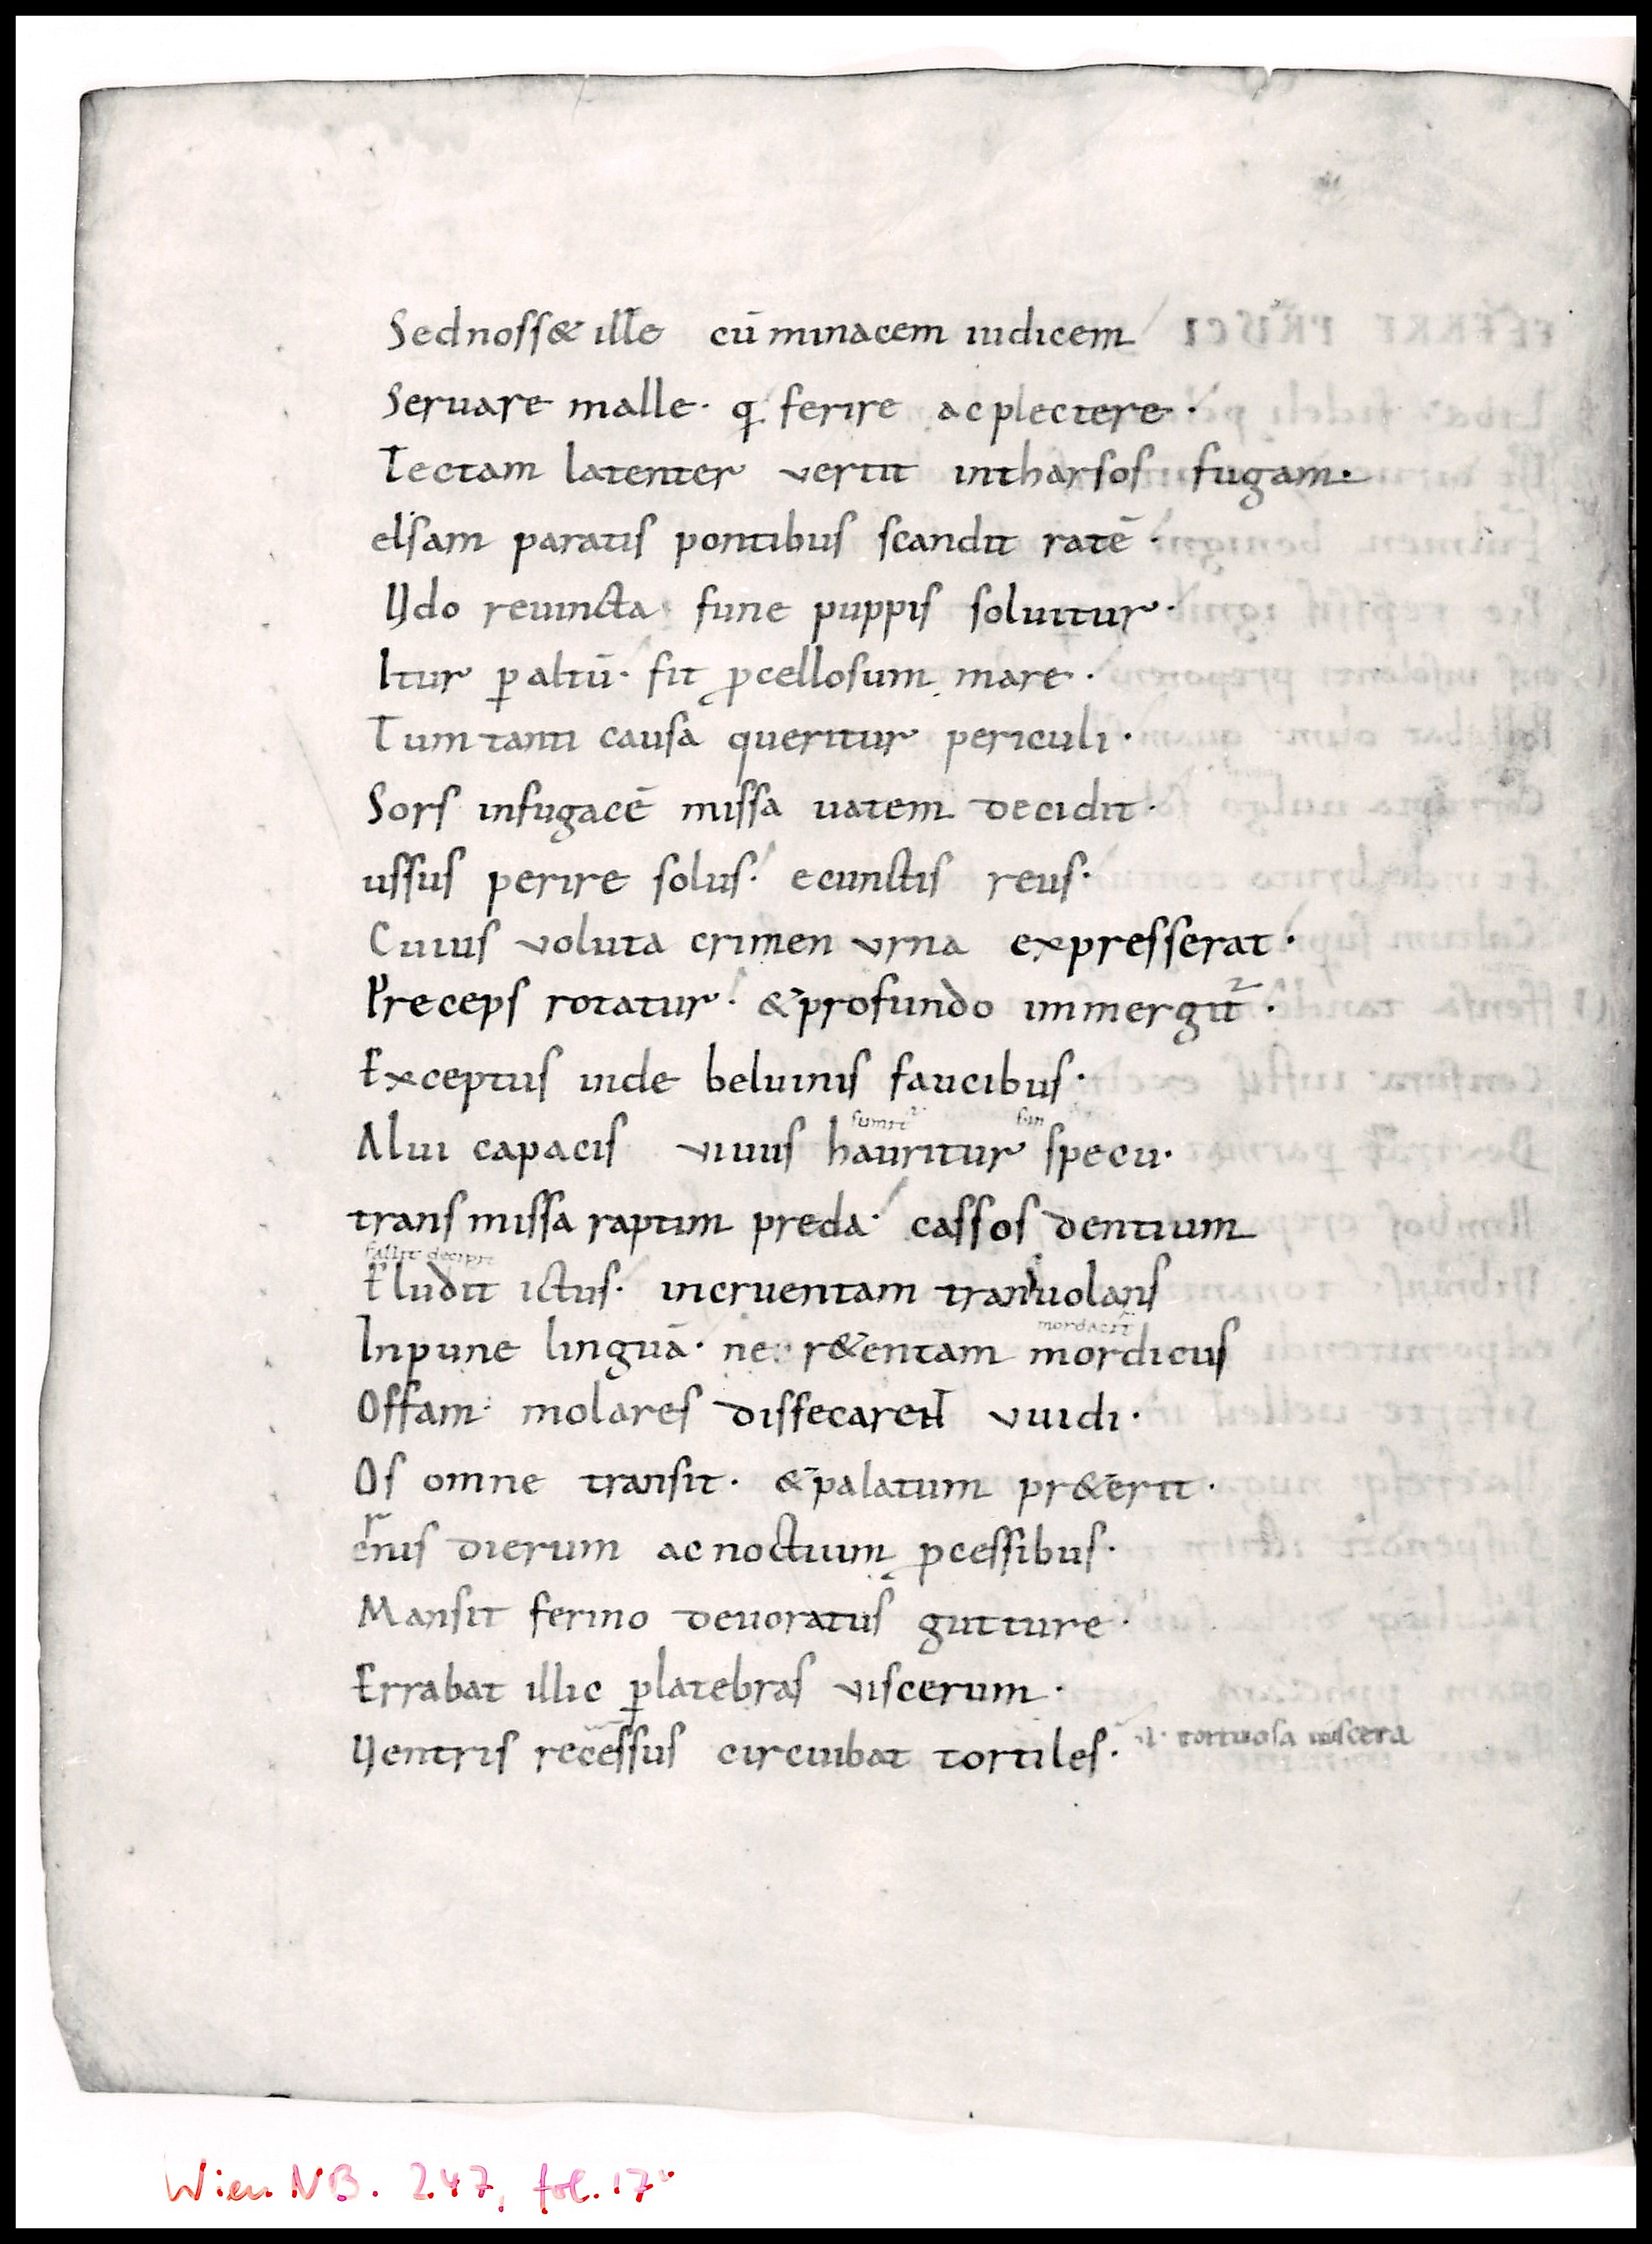 Sed noss& ille cū minacem iudicem
Seruare malle· q̣ ferire ac plectere·
Tectam latenter vertit intharsos fugam·
elsam paratis pontibus scandit ratē·
Udo reuincta fune puppis soluitur·
Itur ꝑ altū· fit ꝓcellosum mare·
Tum tanti causa queritur periculi·
Sors infugacē missa uatem decidit·
ussus perire solus· ecunctis reus·
Cuius voluta crimen vrna expresserat·
Preceps rotatur· & profundo immergit᷑·
Exceptus inde beluinis faucibus·
Alui capacis viuus hauritur specu·
trans missa raptim preda· cassos dentium
fallit decipit
Eludit ictus· incruentam transuolans
Inpune linguā· ne r&entam mordicus
Offam· molares dissecarent vuidi·
Os omne transit· & palatum pr&erit·
ernis dierum ac noctium ꝓcessibus·
Mansit ferino deuoratus gutture·
Errabat illic ꝑ latebras viscerum·
Ventris recessus circuibat tortiles· .i. tortuosa uiscera
Wien NB. 247, fol. 17v